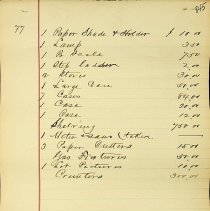 77
1 Paper Shade & Holder $ 10.00
1 Lamp 3.50
1 B Scale 7.50
1 Step ladder 2.00
2 Stove 30.00
1 Large Case 50.00
1 Case 54.00
1 Case 20.00
1 Case 12.00
Shelving 750.00
1 Meter &
3 Paper Cutters 15.00
Gas Fixtures 50.00
1 Lot Pictures 20.00
Counters 300.00